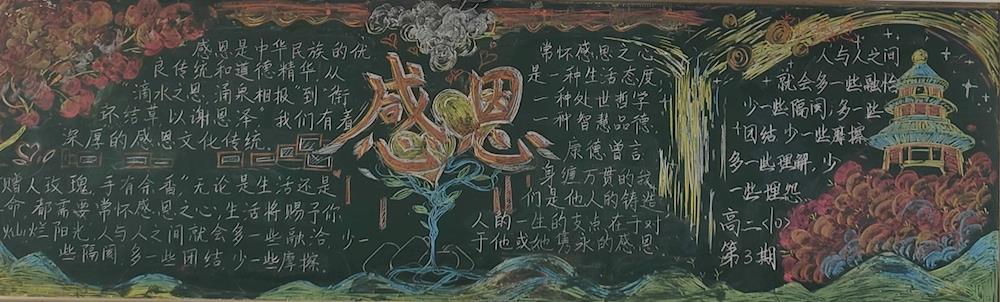 感恩是中华民族的优
良传统和道德精华,从
"滴水之恩,涌泉相报"到"衔
环结草,以谢恩泽"我们有着
深厚的感恩文化传统.
赠人玫瑰,手有余香"无论是生活还是
命,都需要常怀感恩之心,生活将赐予你
灿烂阳光,人与人之间就会多一些融洽,少一
些隔阂,多一些团结,少一些摩擦.
感恩
常怀感恩之心
是一种生活态度
一种处世哲学
一种智慧品德.
康德曾言
身缠万贯的我
们是他人的铸造
人的一生的支点在于对
于他或她隽永的感恩
人与人之间
就会多一些融恰
少一些隔阂,多一些
团结少一些摩擦
多一些理解,少
一些埋怨.
高二
第3期